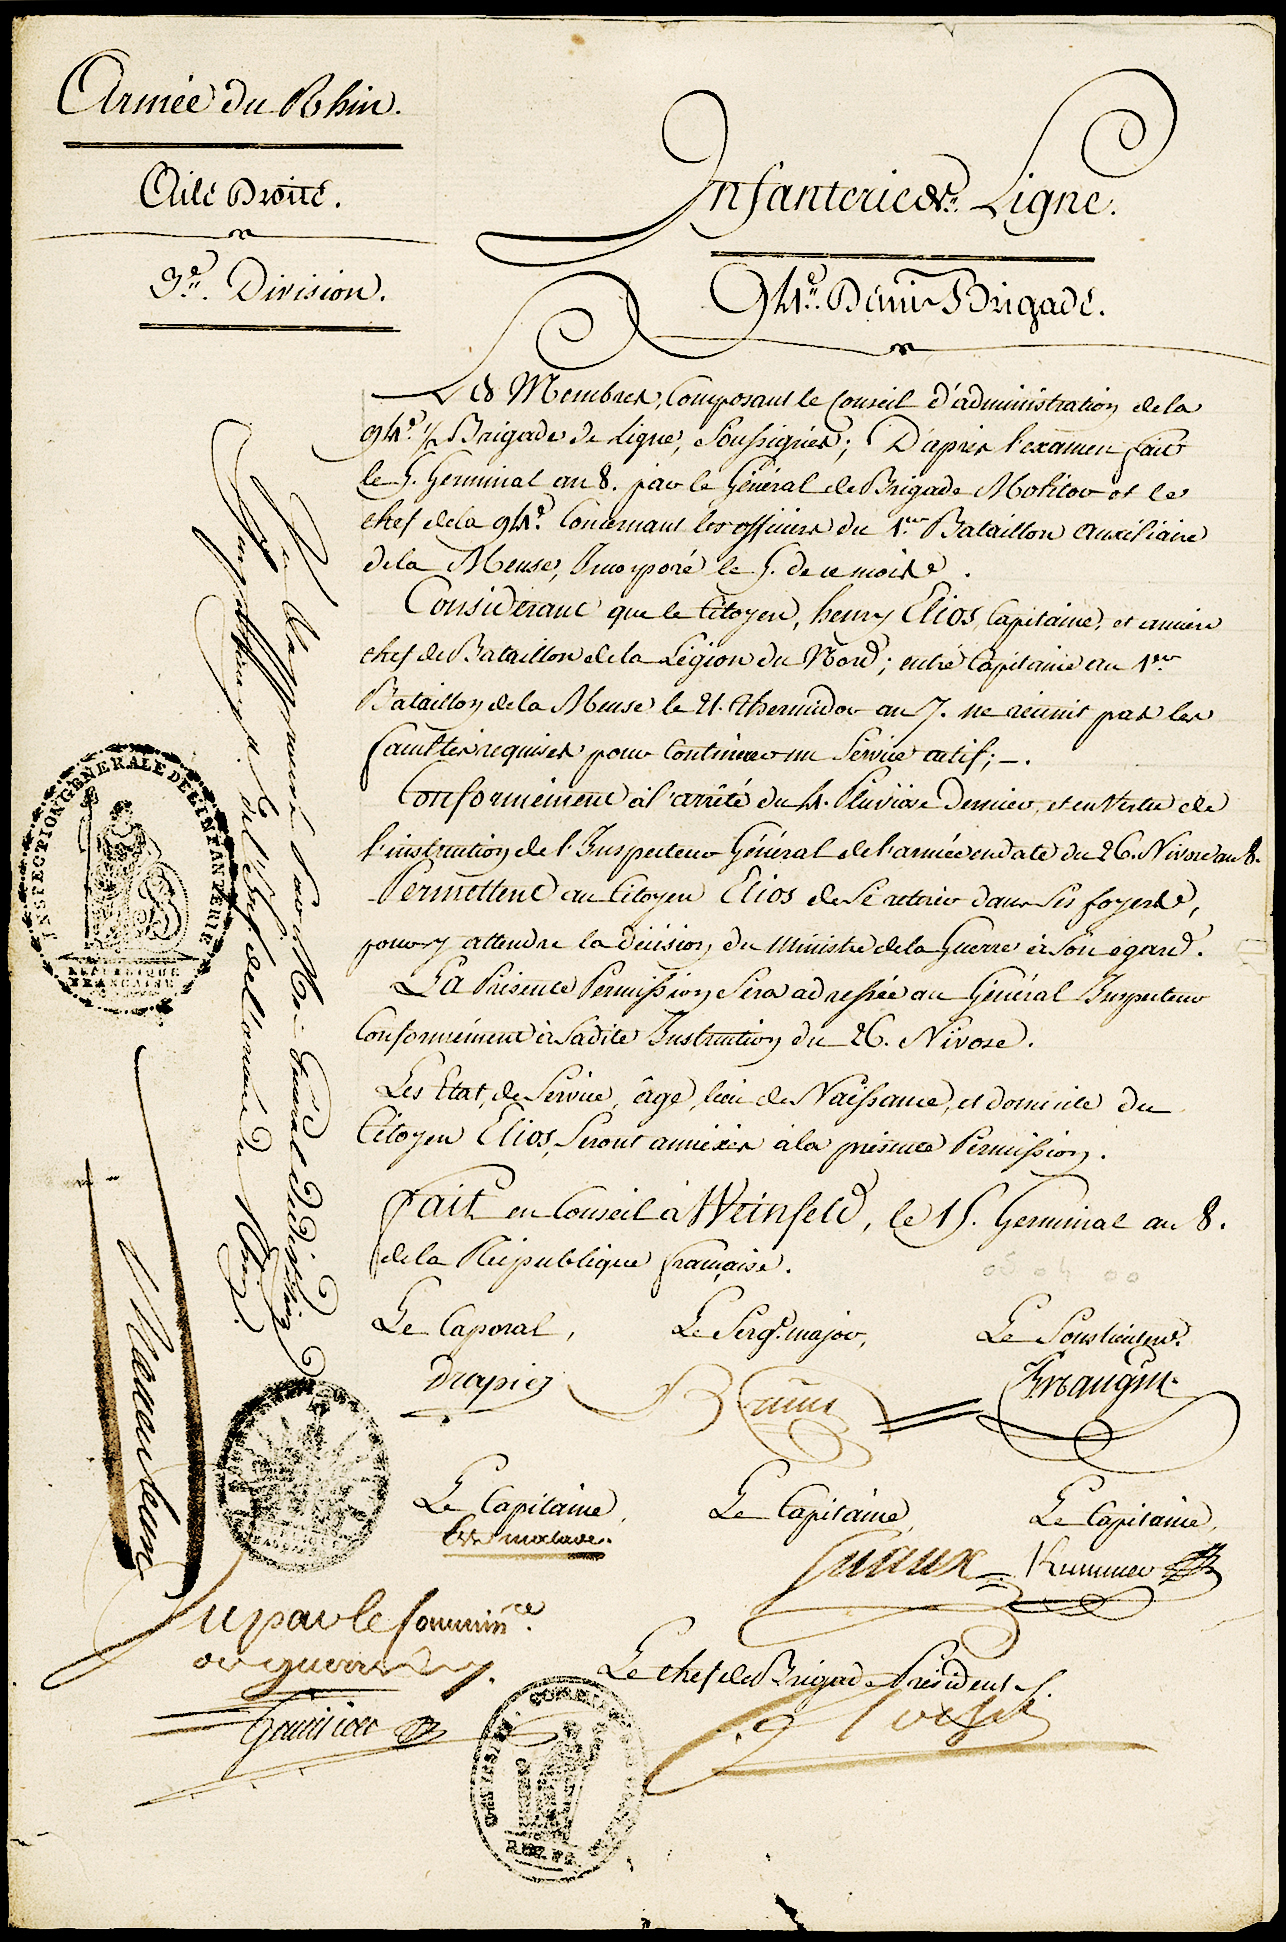 Armée du Rhin.
Aile Droite.
3.e Division.
Infanterie de Ligne.
94.e Demi-Brigade.
Les Membres, Composant le Conseil d'administration de la
94.e 1/2 Brigade de Ligne, Soussignés; D'après l'examen fait
le 5. Germinal an 8. par le Général de Brigade Molitor et le
chef de la 94.e Concernant les officiers du 1.er Bataillon auxiliaire
de la Meuse, Incorporé le 5. de ce mois.
Considerant que le Citoyen, henry Elios, Capitaine, et ancien
chef de Bataillon de la Légion du Nord; entré Capitaine au 1.er
Bataillon de la Meuse le 21. thermidor an 7. ne réunit pas les
facultés requises pour Continuer un Service actif; -.
Conformément à l'arrêté du 4. Pluviose Dernier, et en Vertu de
l'instruction de l'Inspecteur Général de l'armée en date du 26. Nivose an 8.
Permettent au Citoyen Elios de Se retirer dans Ses foyers,
pour y attendre la décision du Ministre de la Guerre à Son égard.
La Présente Permission Sera adressée au Général Inspecteur
Conformément à Sadite Instruction du 26. Nivose.
Les Etat de Service, âge, lieu de Naissance, et domicile du
Citoyen Elios, Seront annéxés à la présente Permission.
fait en Conseil à Weinfeld, le 15. Germinal an 8.
de la République française.
Le Caporal, Le Serg.t major, Le Souslieuten.t
Drapier Brun
Le Capitaine, Le Capitaine, Le Capitaine,
Kummer
Vu par le Commiss.re
des guerres
Le chef de Brigade Président
Vu et approuvé par Moi Général de Division
Inspecteur g.al de l'Inf. de l'armée du Rhin.
INSPECTION GÉNÉRALE DE L'INFANTERIE
RÉPUBLIQUE
FRANÇAISE